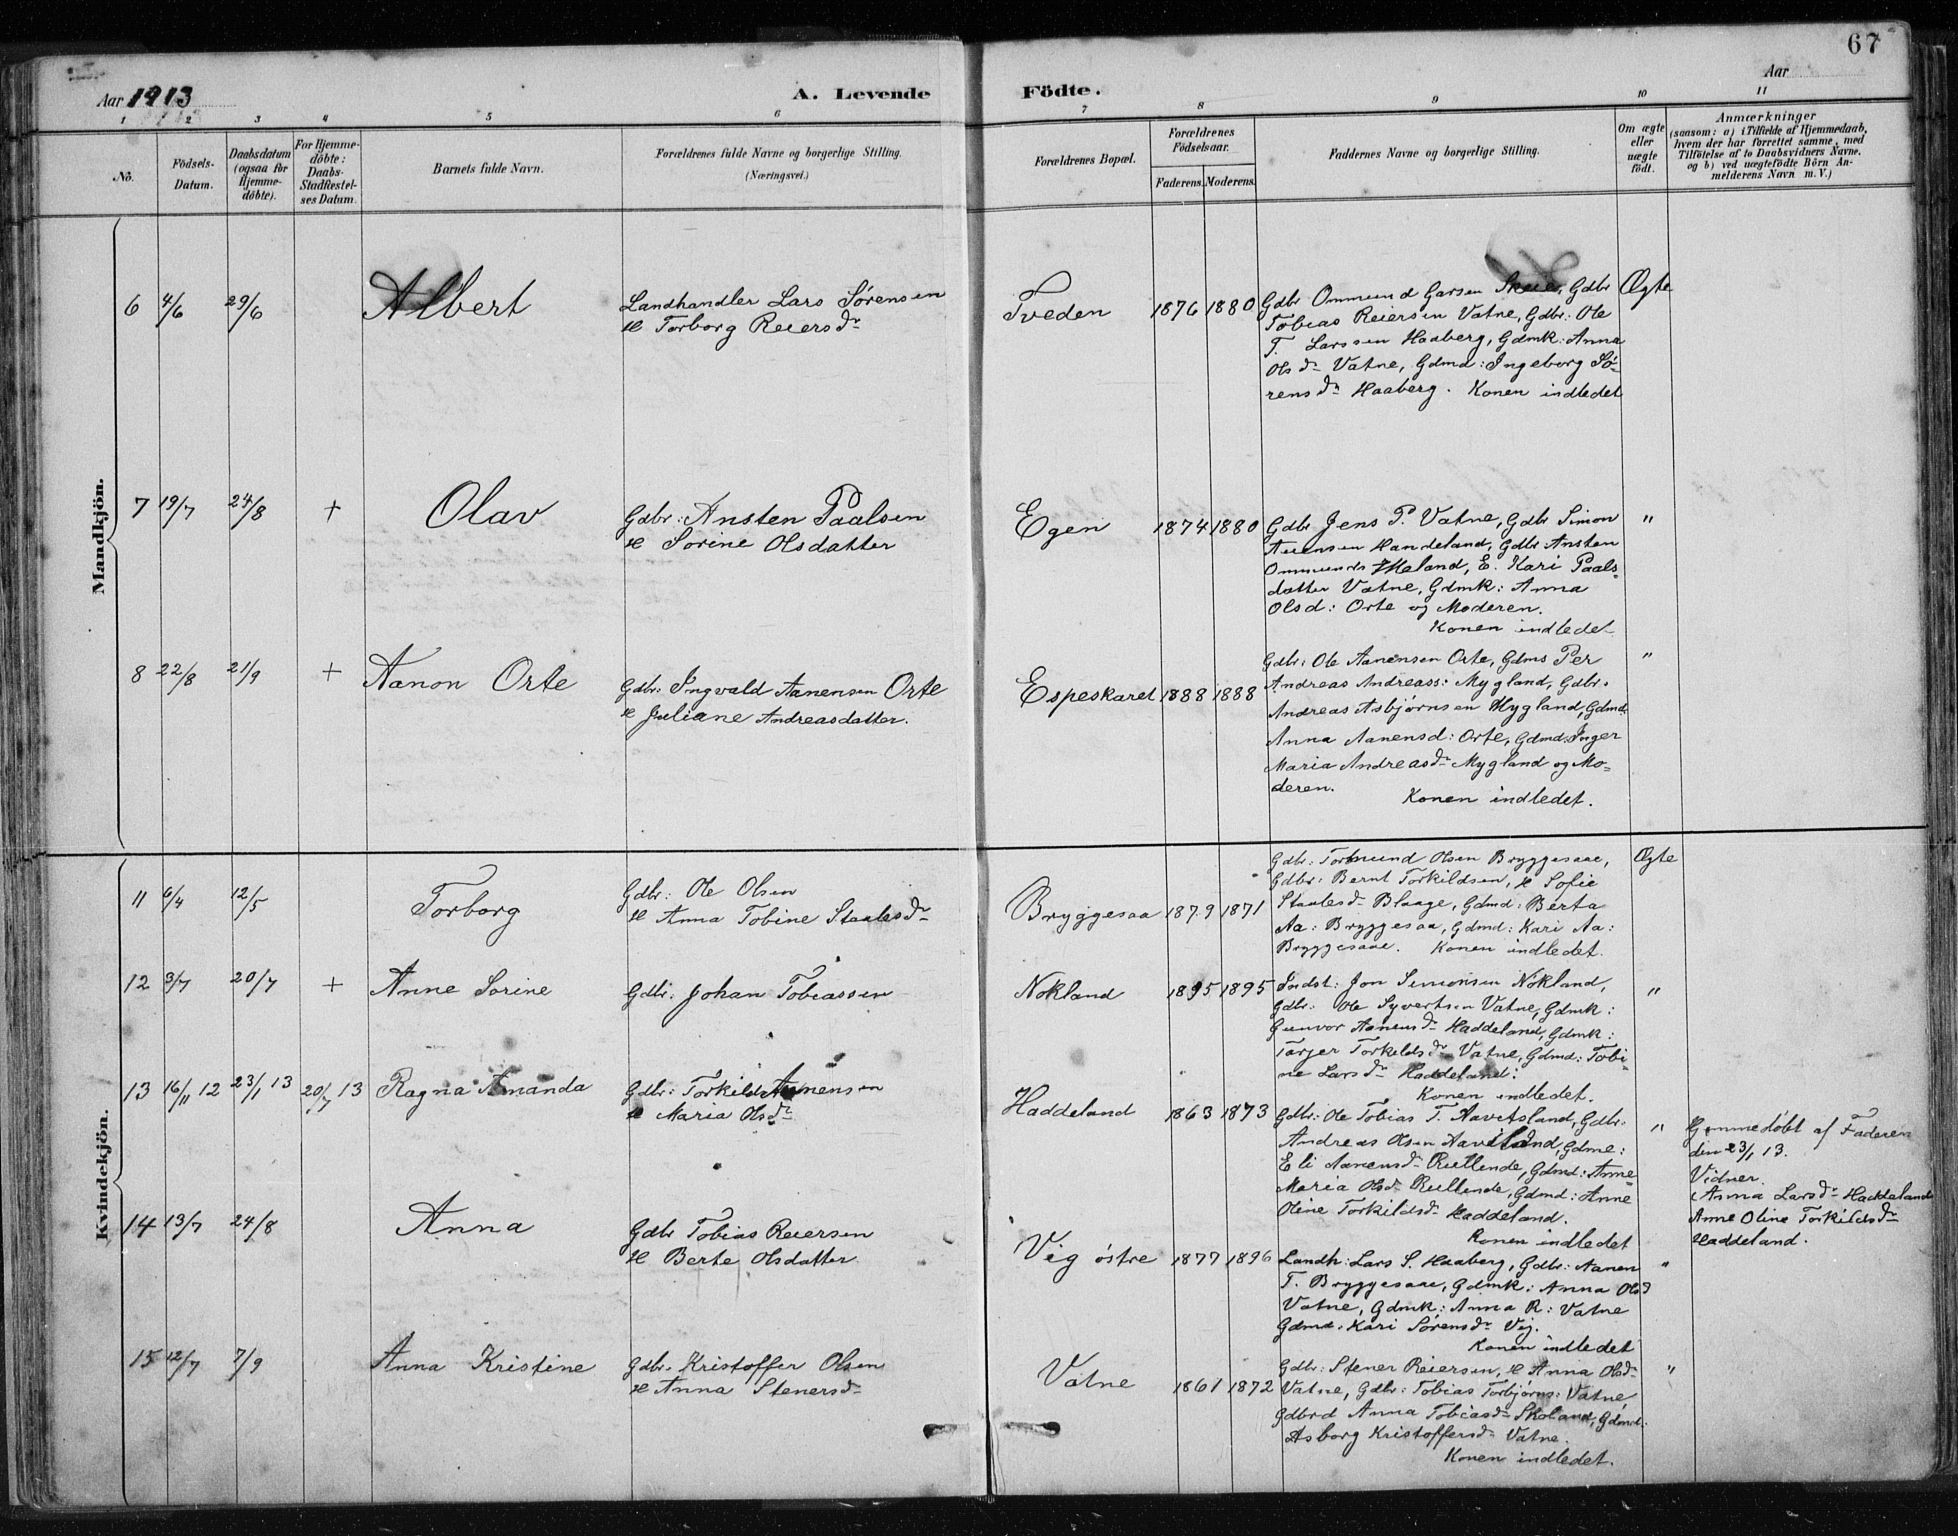 67
Aar 1913
A. Levende Födte.
Aar
1 2 3 4 5 6 7 8 9 10 11
No.
Födsels-Datum.
Daabsdatum (ogsaa for Hjemme-döbte).
For Hjemme-döbte: Daabs-Stadfestel-ses Datum.
Barnets fulde Navn.
Forældrenes fulde Navne og borgerlige Stilling.
(Næringsvei.)
Forældrenes Bopæl.
Forældrenes Födselsaar.
Faderens. Moderens.
Faddernes Navne og borgerlige Stilling.
Om ægte eller uægte födt.
Anmærkninger
(saasom: a) i Tilfælde af Hjemmedaab, hvem der har forrettet samme, med Tilföielse af to Daabsvidners Navne. og b) ved uægtefödte Börn An-melderens Navn m. V.)
Mandkjön.
6 4/6 29/6 Albert
Landhandler Lars Sørensen
H Torborg Reiersdr
Tveden 1876 1880
Gdbr Ommund Garsen Skeie, Gdbr
Tobias Reiersen Vatne, Gdbr: Ole
T. Larssen Haaberg, Gdmk: Anna
Olsdr Vatne, Gdmd: Ingeborg Sø-
rensdr Haaberg. Konen indledet
Ægte
7 19/7 24/8 + Olav
Gdbr: Ansten Paalsen
H Sorine Olsdatter
Egen 1874 1880
Gdbr Jens P. Vatne, Gdbr Simon
Handeland, Gdbr Ansten
Ommunds Meland, E. Kari Paals-
datter Vatne, Gdmk: Anna
Olsd: Orte og Moderen.
Konen indledet
"
8 22/8 21/9 + Aanon Orte
Gdbr: Ingvald Aanensen Orte
H Juliane Andreasdatter.
Espeskaret 1888 1888
Gdbr: Ole Aanensen Orte, Gdms Per
Andreas Andreass: Mygland, Gdbr.
Andreas Asbjørnsen Mygland, Gdmd:
Anna Aanensd: Orte, Gdmd: Inger
Maria Andreasdr Mygland og Mo-
deren. Konen indledet.
"
Kvindekjön.
11 6/4 12/5 Torborg
Gdbr: Ole Olsen
H Anna Tobine Staalesdr
Bryggesaa 1879 1871
Gdbr: Tormund Olsen Bryggesaae,
Gdbr: Bernt Torkildsen, H Sofie
Staalesdr Blaage, Gdmd: Berta
Aa: Bryggesaa, Gdmd: Kari Aa:
Bryggesaae. Konen indledet.
Ægte
12 3/7 20/7 + Anne Sorine
Gdbr: Johan Tobiassen
Nokland 1895 1895
Indst: Jon Simonsen Nokland,
Gdbr: Ole Syvertsen Vatne, Gdmk:
Gunvor Aanensdr Haddeland, Gdmk:
Tarjer Torkildsdr Vatne, Gdmd: Tobi-
ne Larsdr Haddeland:
Konen indledet.
"
13 16/11 12 23/1 13 20/7 13 Ragna Amanda
Gdbr: Torkild Aanensen
H Maria Olsdr
Haddeland 1863 1873
Gdbr: Ole Tobias T. Aavitsland, Gdbr.
Andreas Olsen Aavitsland, Gdme:
Eli Aanensdr Rullende, Gdmd: Anne
Maria Olsdr Rullende, Gdmd: Anne
Oline Torkildsdr Haddeland.
Konen indledet
"
Hjemmedøbt af Faderen
den 23/1 13.
Vidner.
Anna Larsdr Haddeland
Anne Oline Torkildsdr
Haddeland.
14 13/7 24/8 Anna
Gdbr Tobias Reiersen
H Berte Olsdatter
Vig østre 1877 1896
Landh: Lars S. Haaberg, Gdbr: Aanen
T. Bryggesaae, Gdmk: Anna Olsd
Vatne, Gdmk: Anna R: Vatne
Gdmd: Kari Sørensdr Vig.
Konen indledet
"
15 12/7 7/9 Anna Kristine
Gdbr. Kristoffer Olsen
H Anna Stenersdr
Vatne 1861 1872
Gdbr: Stener Reiersen, H Anna Olsdr
Vatne, Gdbr: Tobias Torbjørns: Vatne,
Gdbrd Anna Tobiasdr Skoland, Gdmd:
Asborg Kristoffersdr Vatne.
Konen indledet.
"